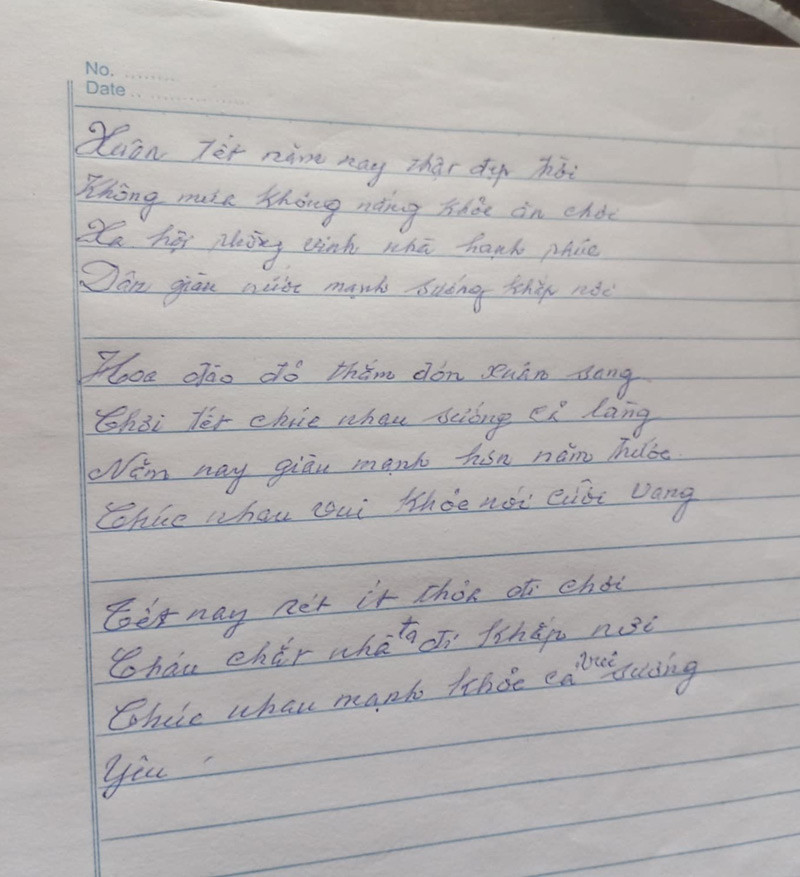 No. ........
Date .. ...............
Xuân Tết năm nay thật đẹp trời
Không mưa không nắng khỏe ăn chơi
Xa hội phồng vinh nhà hạnh phúc
Dân giàu nước mạnh sướng khắp nơi
Hoa đào đỏ thắm đón xuân sang
Chơi tết chúc nhau sướng cả làng
Năm nay giàu mạnh hơn năm trước
Chúc nhau vui khỏe nói cười vang
Tết nay rét ít thỏa đi chơi
Cháu chắt nhà ta đi khắp nơi
Chúc nhau mạnh khỏe cả vui sướng
Yêu